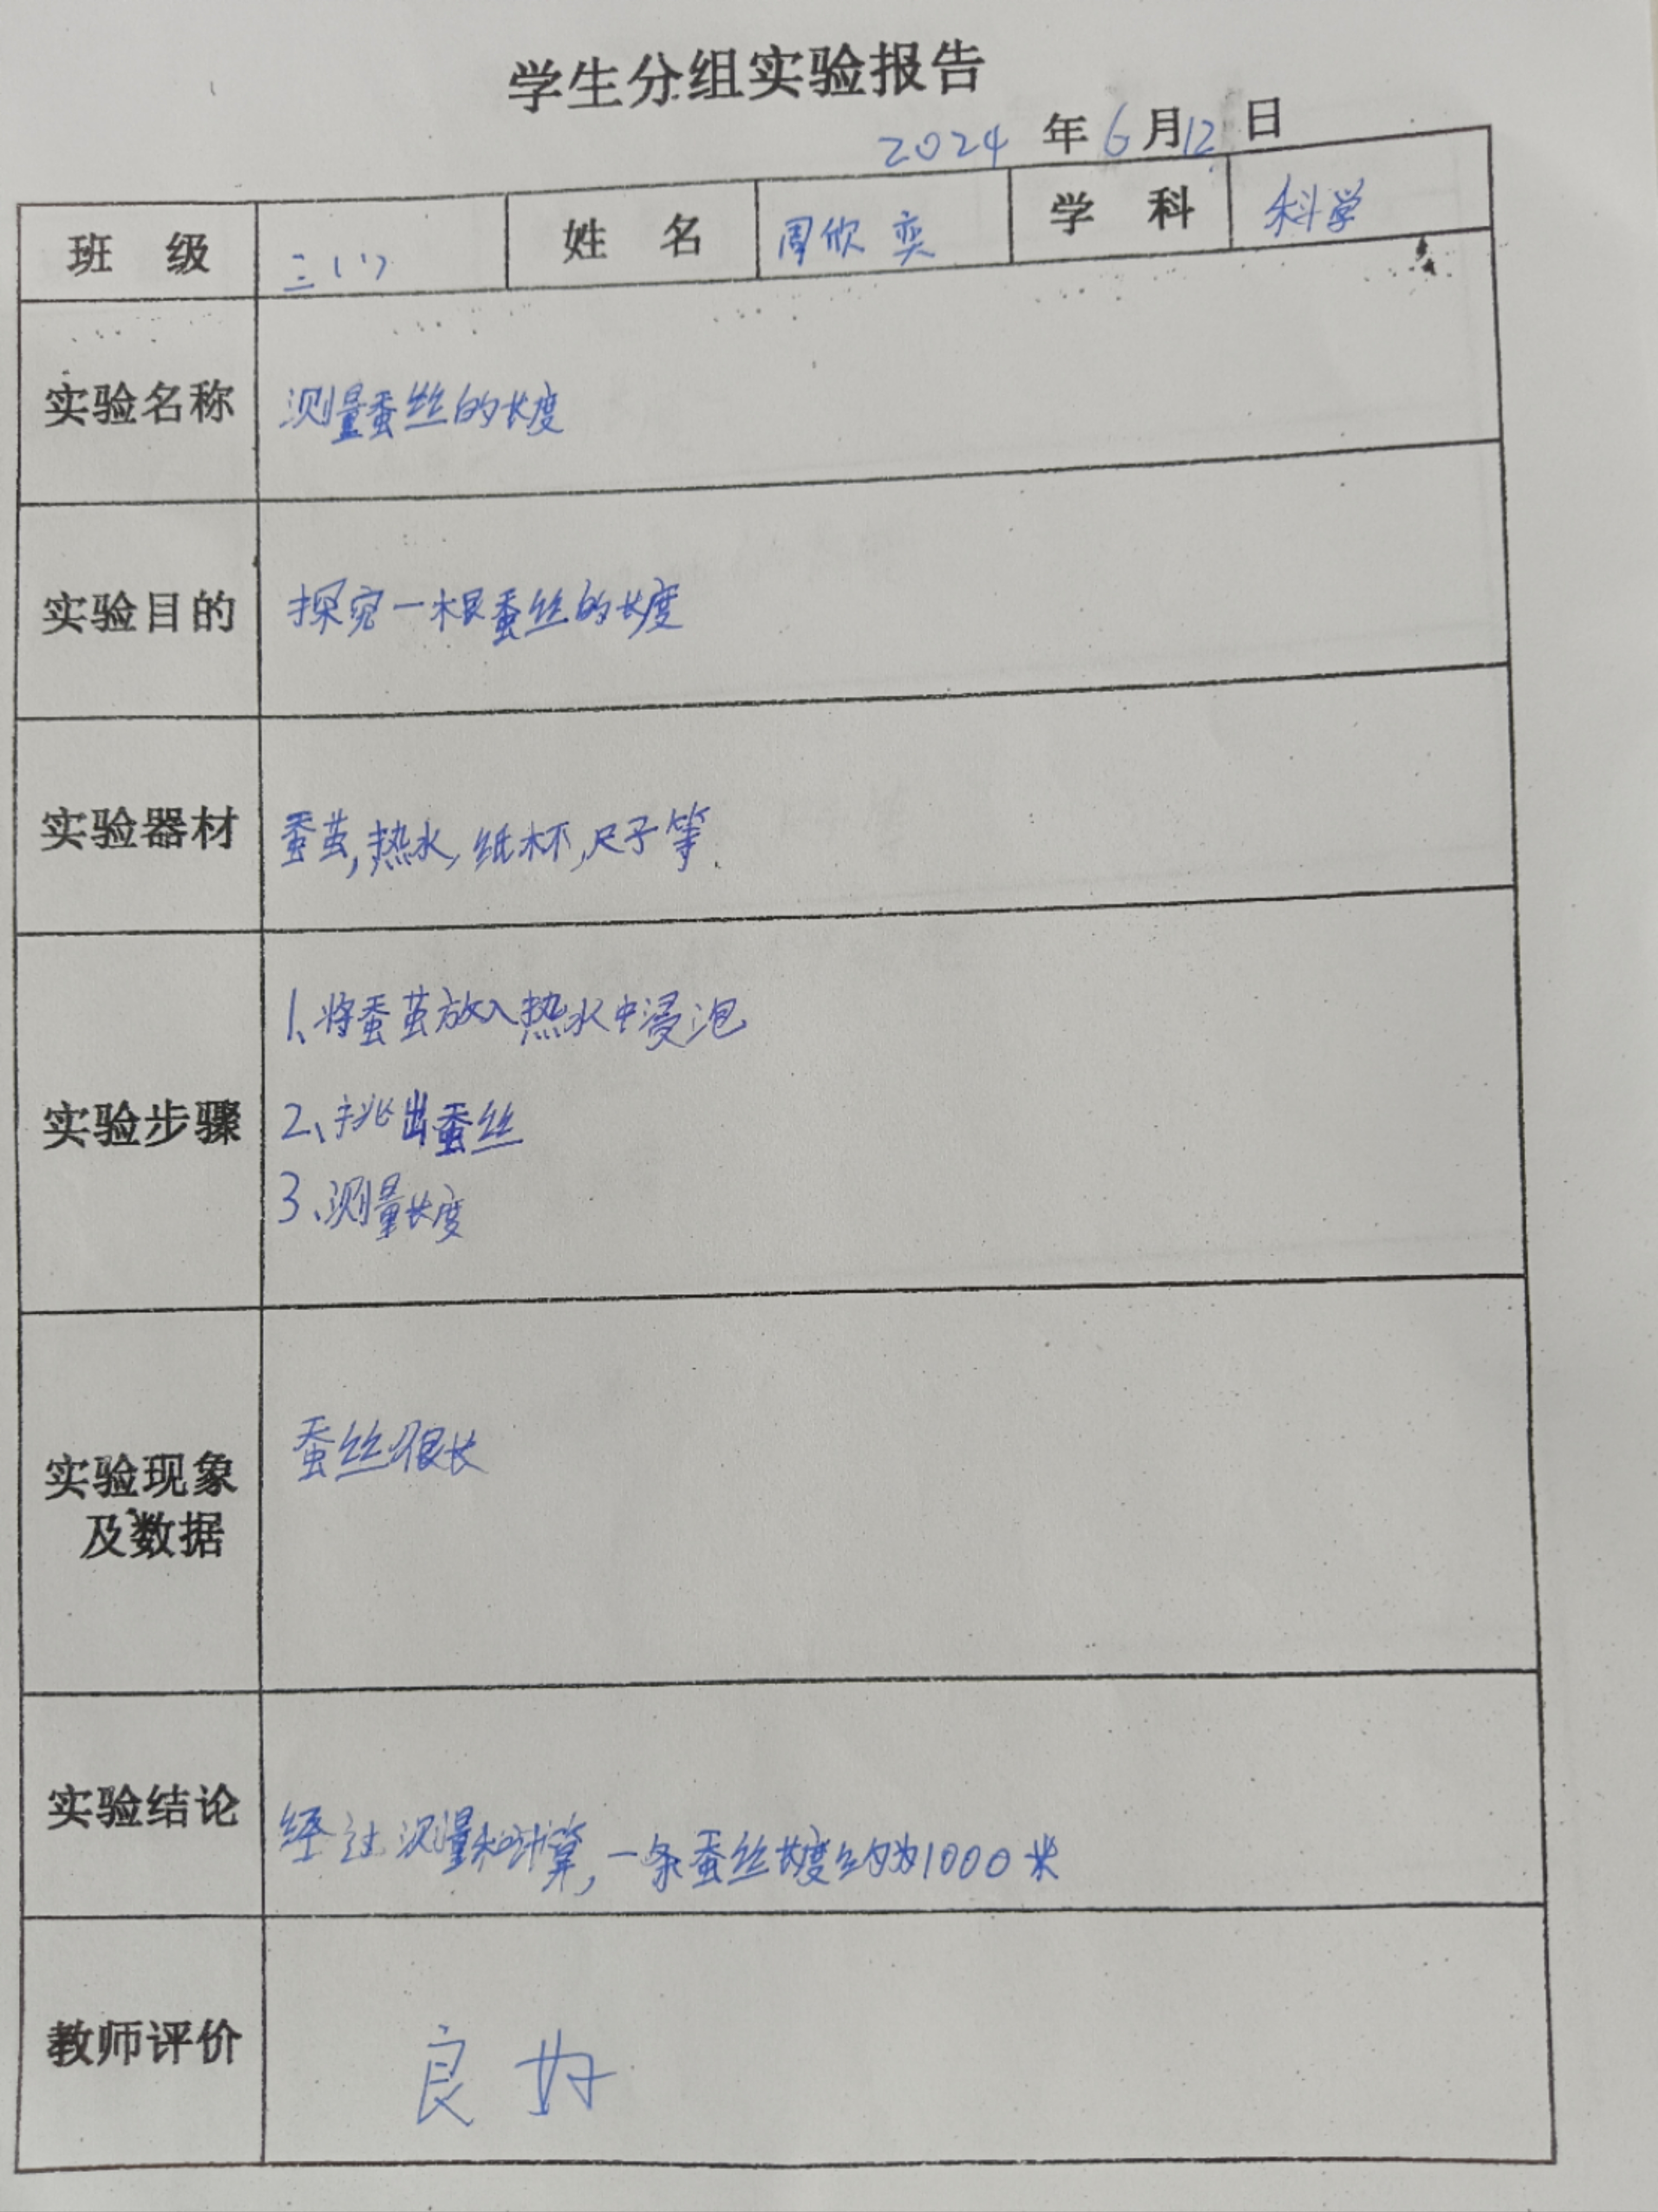 学生分组实验报告
2024 年 6 月 12 日
班 级 三(1) 姓 名 周欣奕 学 科 科学
实验名称 测量蚕丝的长度
实验目的 探究一根蚕丝的长度
实验器材 蚕茧,热水,纸杯,尺子等.
实验步骤
1、将蚕茧放入热水中浸泡
2、挑出蚕丝
3、测量长度
实验现象
及数据
蚕丝很长
实验结论 经过测量和计算,一条蚕丝长度约为1000米
教师评价 良好